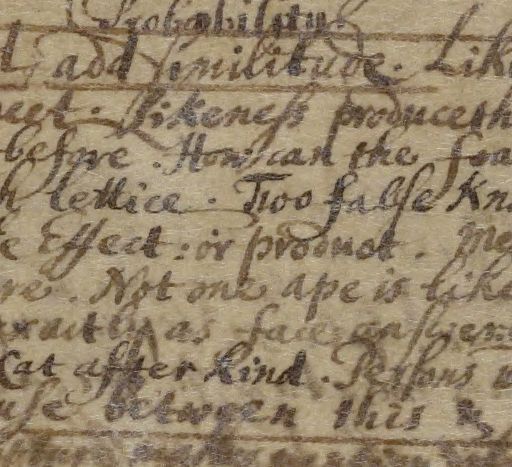 Probability.
add similitude. Lik
Likeness produceth
before. How can the foa
h lettice. Too false Kn
e Effect: or product. Me
re. Not one ape is like
exactly as face answer
Cat after kind. Persons
use between this &